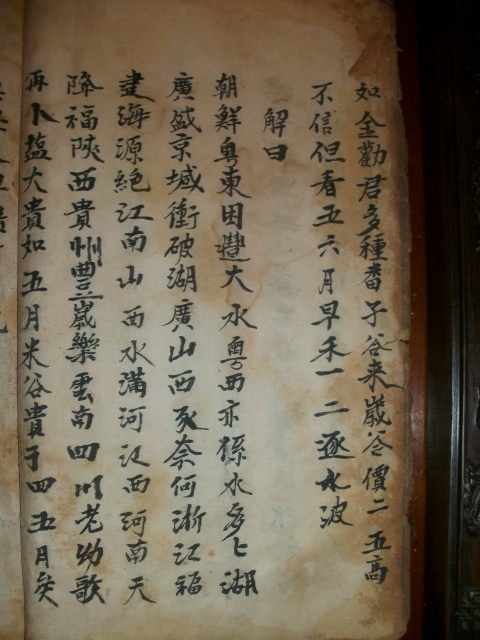 如金勸君多種番子谷来歲谷價二五高
不信但看五六月早禾一二逐水波
解曰
朝鮮粤東田豐大水粤西亦係水多匕湖
廣盛京城衝破湖廣山西豕奈何浙江福
建海源絶江南山西水滿河江西河南天
降福陜西貴州豊歲樂雲南四川老幼歌
再卜塩大貴如五月米谷貴于四五月矣